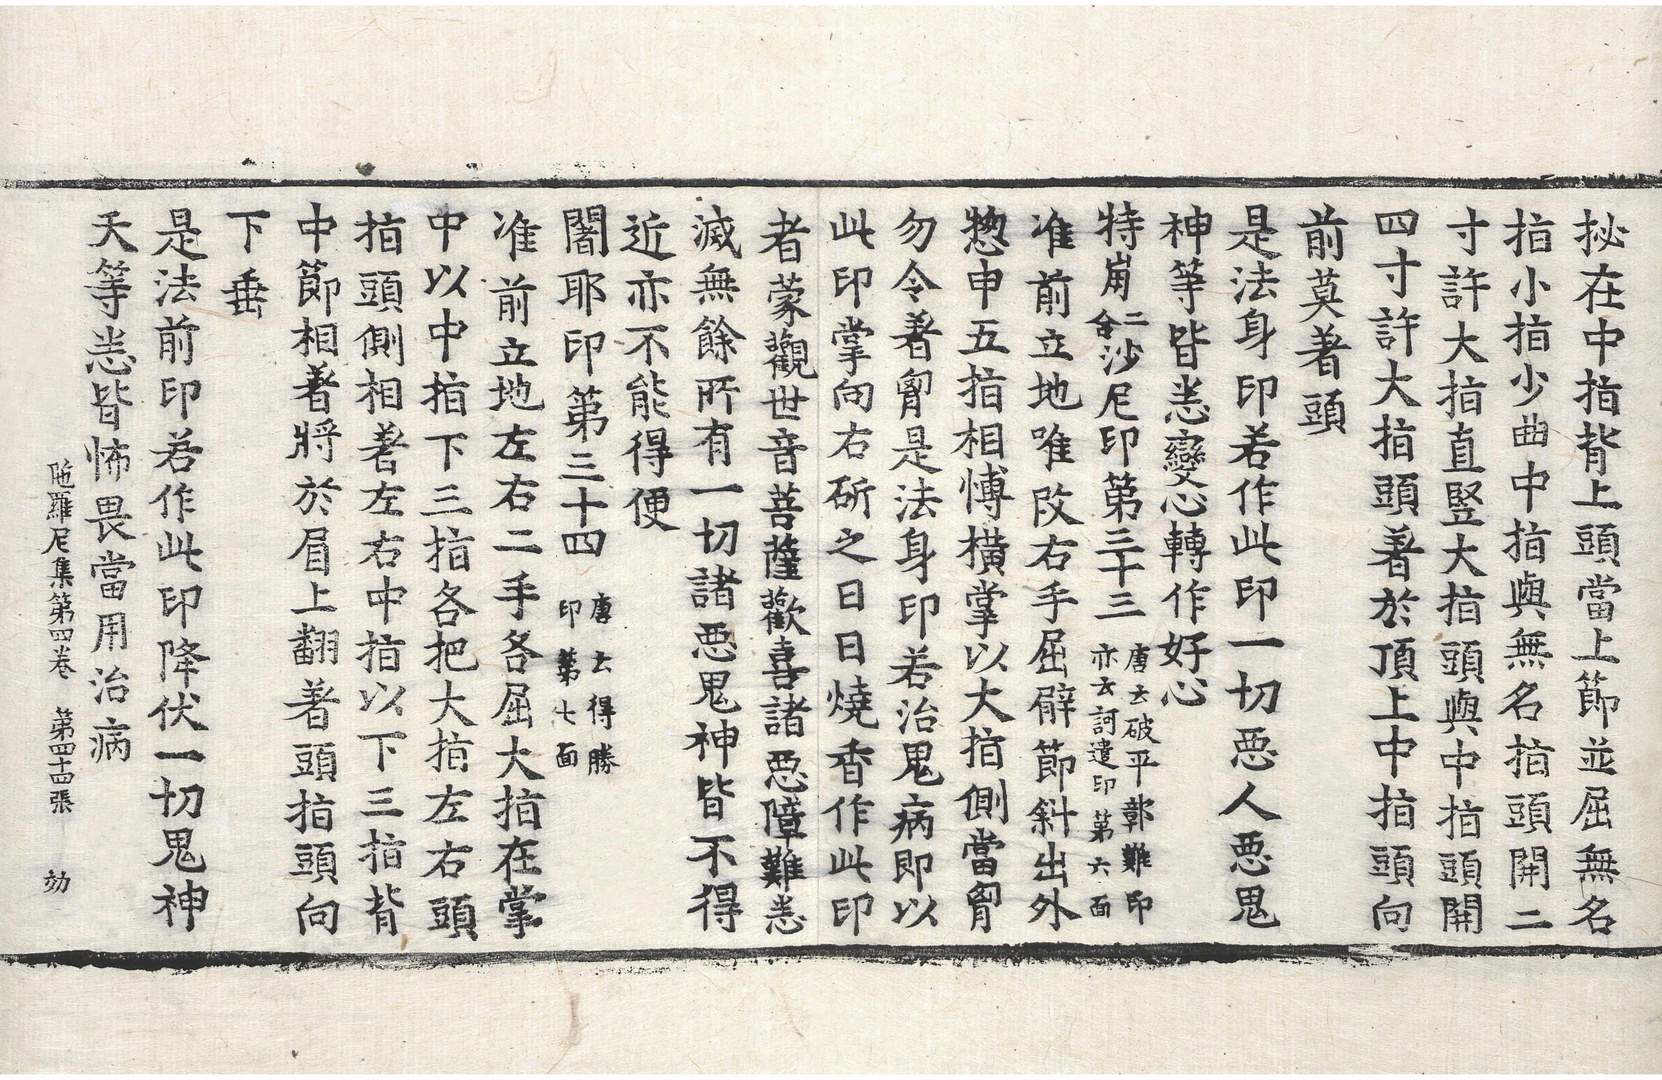 拟在中指背上頭當上節並屈無名
指小指少曲中指與無名指頭開二
寸許大指直竪大指頭與中指頭開
四寸許大指頭著於頂上中指頭向
前莫著頭
是法身印若作此印一切惡人惡鬼
神等皆悉變心轉作好心
特崗二合沙尼印第三十三唐云破平鄣難印亦云訶遣印第六面
准前立地唯改右手屈臂節斜出外
惣申五指相愽横掌以大指側當𦙄
勿令著𦙄是法身印若治鬼病即以
此印掌向右斫之日日燒香作此印
者蒙觀世音菩薩歡喜諸惡障難悉
滅無餘所有一切諸惡鬼神皆不得
近亦不能得便
闍耶印第三十四唐云得勝印第七面
准前立地左右二手各屈大指在掌
中以中指下三指各把大指左右頭
指頭側相著左右中指以下三指背
中節相著將於眉上翻著頭指頭向
下垂
是法前印若作此印降伏一切鬼神
天等悉皆怖畏當用治病
陁羅尼集第四卷 第四十四張 効